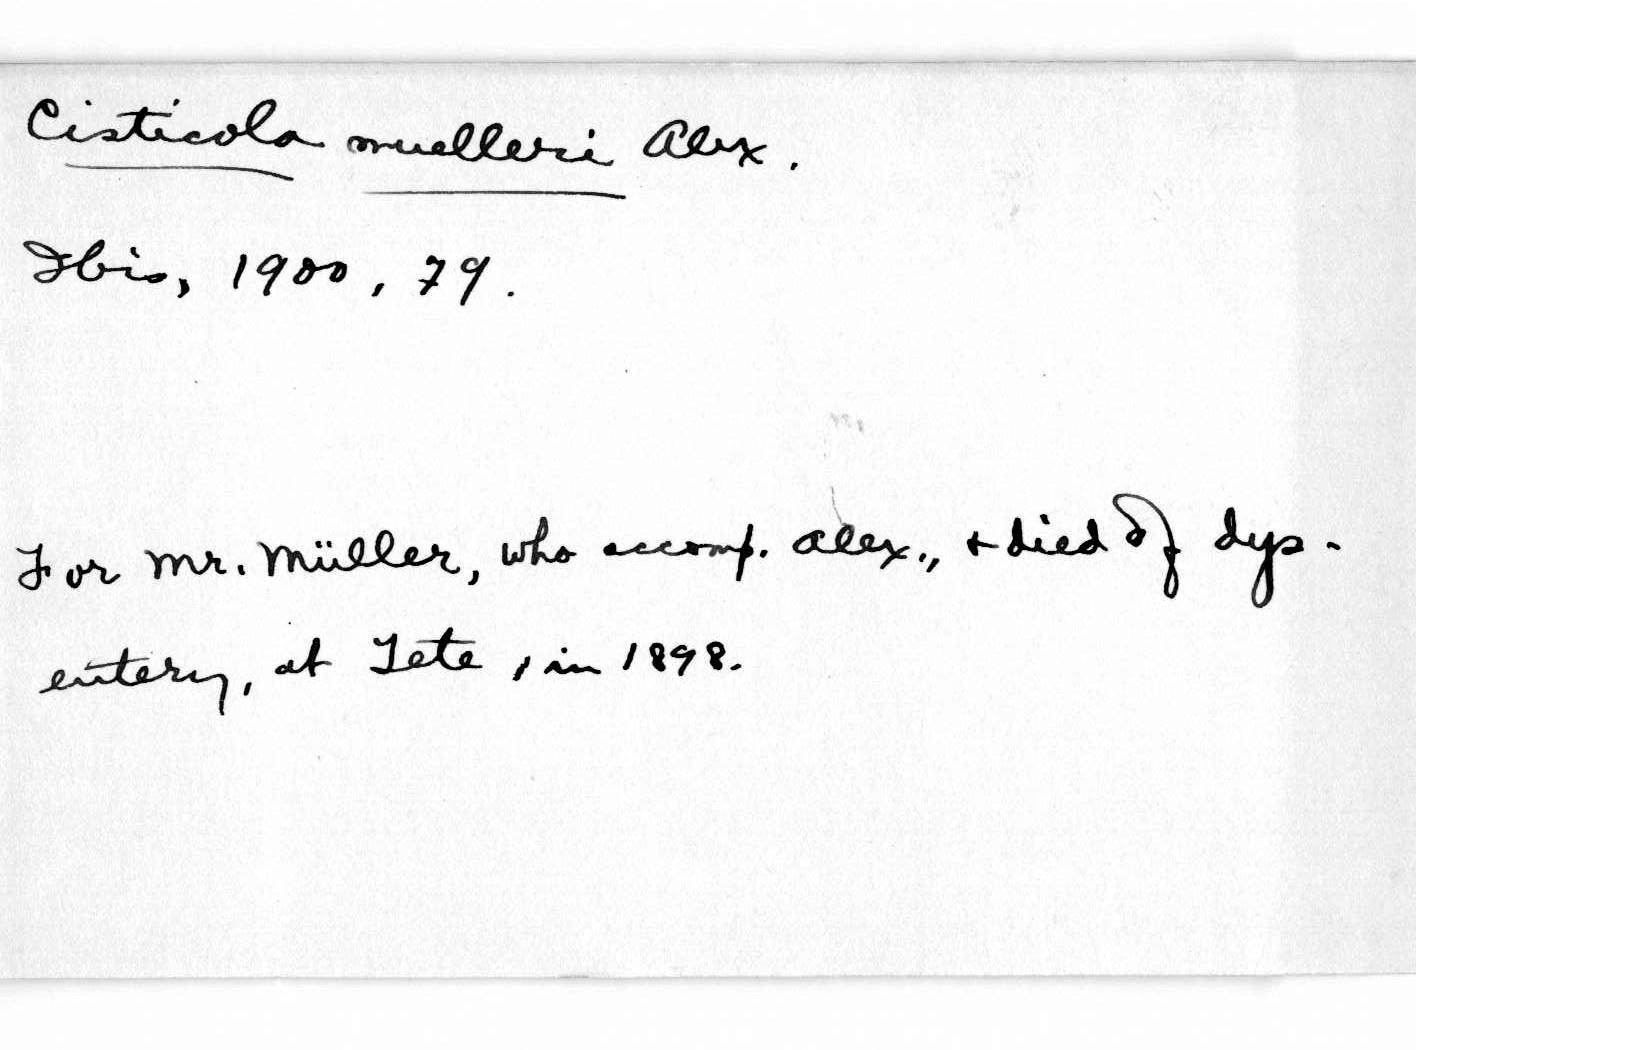 Cisticola muelleri Alex.
Ibis, 1900, 79.
For Mr. Müller, who accomp. Alex., + died of dys-
entery, at Tete, in 1898.